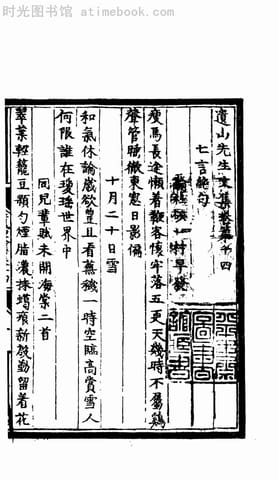 时光图书馆 www.atimebook.com
遺山先生文集卷第十四
七言絶句
村早發
瘦馬長途懶着鞭客懷牢落五更天幾時不屬鷄
聲管睡徹東窓日影偏
十月二十日雪
和氣休論歲欲豊且看蕪穢一時空臨高賞雪人
何限誰在瓊瑶世界中
同兒輩賦未開海棠二首
翠葉輕籠豆顆勻胭脂濃抹蠟痕新殷勤留着花